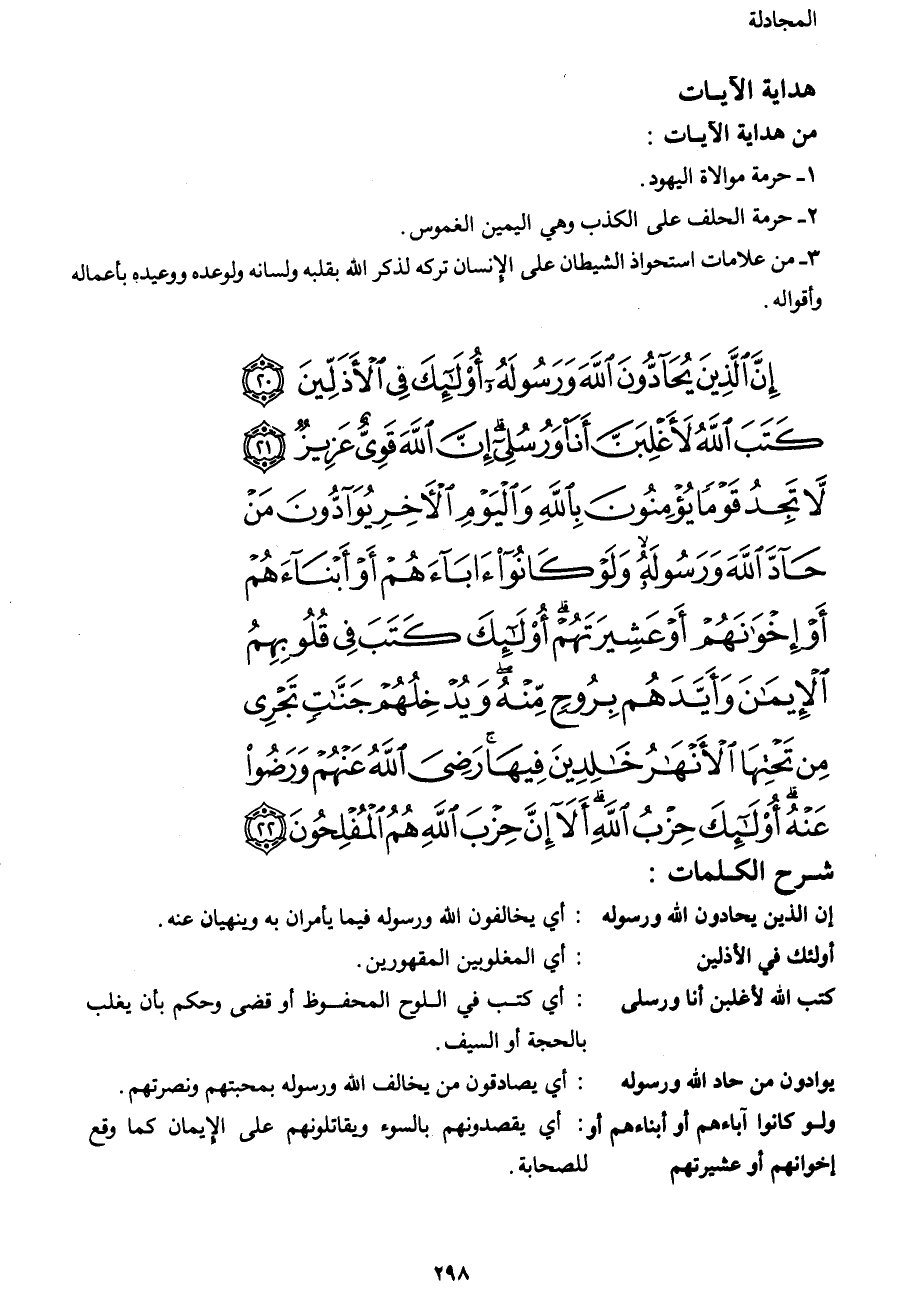 المجادلة
هداية الآيـات
من هداية الآيـات :
١ـ حرمة موالاة اليهود.
٢ـ حرمة الحلف على الكذب وهي اليمين الغموس.
٣ـ من علامات استحواذ الشيطان على الإنسان تركه لذكر الله بقلبه ولسانه ولوعده ووعيده بأعماله
وأقواله.
إِنَّ ٱلَّذِينَ يُحَآدُّونَ ٱللَّهَ وَرَسُولَهُۥٓ أُوْلَـٰٓئِكَ فِى ٱلْأَذَلِّينَ ﴿٢٠﴾
كَتَبَ ٱللَّهُ لَأَغْلِبَنَّ أَنَا۠ وَرُسُلِىٓ ۚ إِنَّ ٱللَّهَ قَوِىٌّ عَزِيزٌ ﴿٢١﴾
لَّا تَجِدُ قَوْمًا يُؤْمِنُونَ بِٱللَّهِ وَٱلْيَوْمِ ٱلْـَٔاخِرِ يُوَآدُّونَ مَنْ
حَآدَّ ٱللَّهَ وَرَسُولَهُۥ وَلَوْ كَانُوٓا۟ ءَابَآءَهُمْ أَوْ أَبْنَآءَهُمْ
أَوْ إِخْوَٰنَهُمْ أَوْ عَشِيرَتَهُمْ ۚ أُوْلَـٰٓئِكَ كَتَبَ فِى قُلُوبِهِمُ
ٱلْإِيمَـٰنَ وَأَيَّدَهُم بِرُوحٍ مِّنْهُ ۖ وَيُدْخِلُهُمْ جَنَّـٰتٍ تَجْرِى
مِن تَحْتِهَا ٱلْأَنْهَـٰرُ خَـٰلِدِينَ فِيهَا ۚ رَضِىَ ٱللَّهُ عَنْهُمْ وَرَضُوا۟
عَنْهُ ۚ أُوْلَـٰٓئِكَ حِزْبُ ٱللَّهِ ۚ أَلَآ إِنَّ حِزْبَ ٱللَّهِ هُمُ ٱلْمُفْلِحُونَ ﴿٢٢﴾
شـرح الكـلمات :
إن الذين يحادون الله ورسوله : أي يخالفون الله ورسوله فيما يأمران به وينهيان عنه.
أولئك في الأذلين : أي المغلوبين المقهورين.
كتب الله لأغلبن أنا ورسلى : أي كتـب في اللـوح المحفـوظ أو قضى وحكم بأن يغلب
بالحجة أو السيف.
يوادون من حاد الله ورسوله : أي يصادقون من يخالف الله ورسوله بمحبتهم ونصرتهم.
ولـو كانوا آباءهم أو أبناءهم أو: أي يقصدونهم بالسوء ويقاتلونهم على الإيمان كما وقع
إخوانهم أو عشيرتهم للصحابة.
٢٩٨